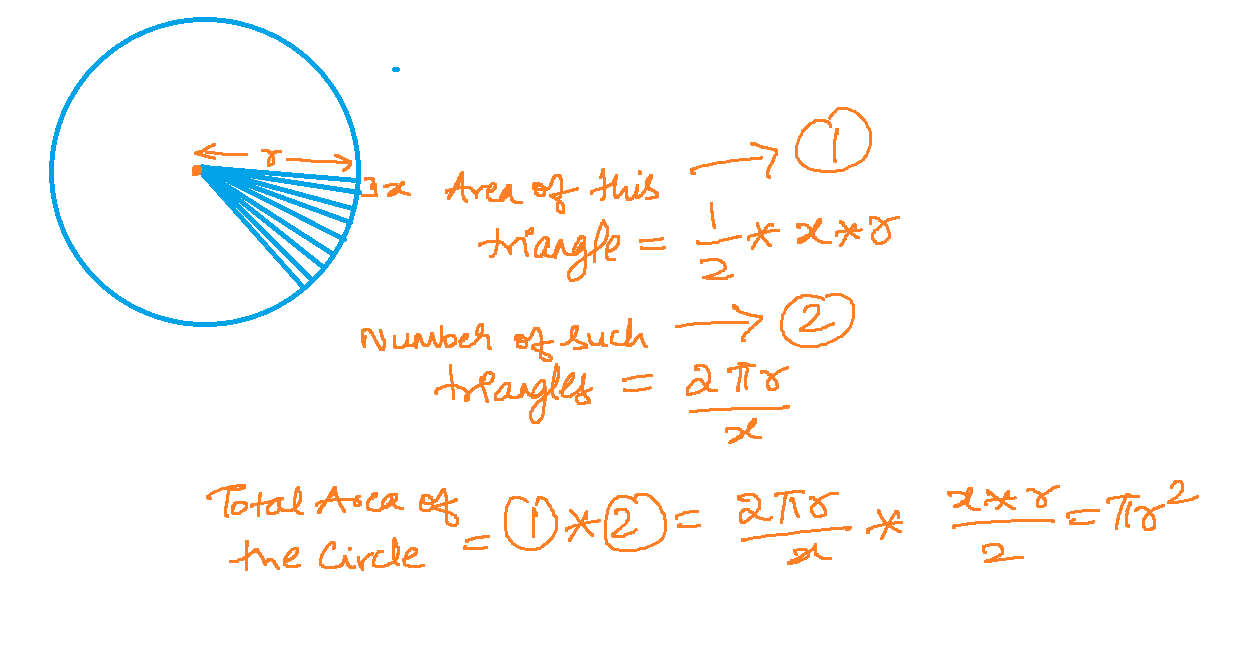 r
x Area of this → ①
triangle = 1/2 * x * r
Number of such → ②
triangles = 2πr/x
Total Area of
the Circle = ① * ② = 2πr/x * x*r/2 = πr²